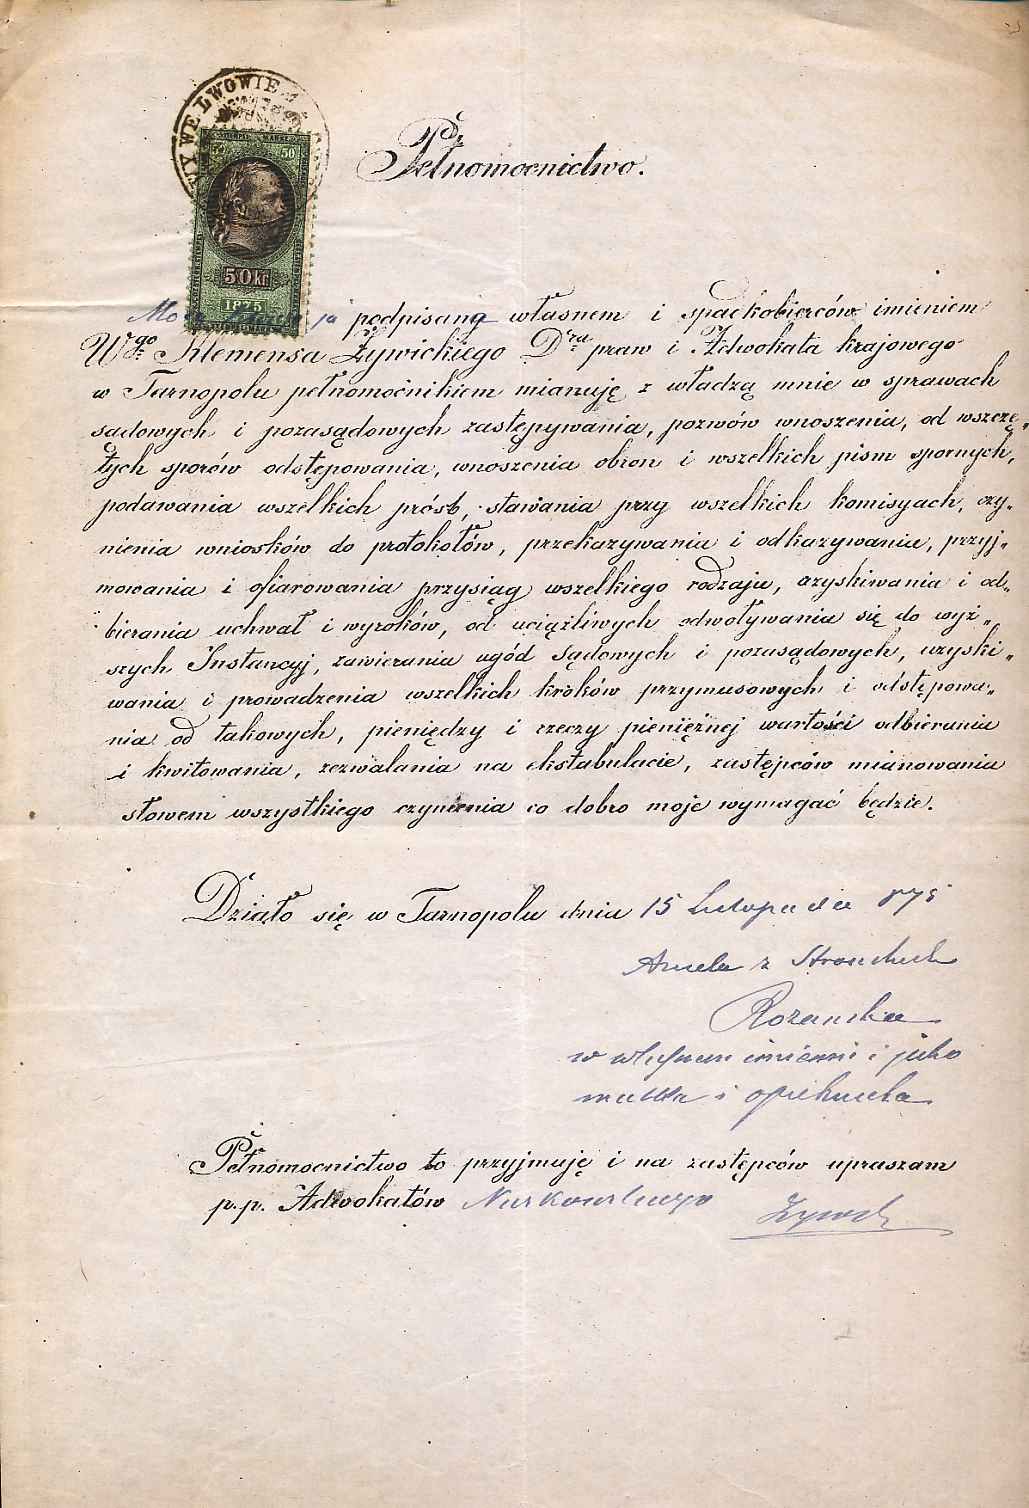 WY WE LWOWIE
STEMPEL MARKE
50 50
50 kr
1875
Pełnomocnictwo.
ja podpisana własnem i spadkobierców imieniem
Wgo Klemensa Żywickiego Dra praw i Adwokata krajowego
w Tarnopolu pełnomocnikiem mianuję z władzą mnie w sprawach
sądowych i pozasądowych zastępywania, pozwów wnoszenia, od wszczę„
tych sporów odstępowania, wnoszenia obron i wszelkich pism spornych,
podawania wszelkich próśb, stawania przy wszelkich komisyach, czy„
nienia wniosków do protokołów, przekazywania i odkazywania, przyj„
mowania i ofiarowania przysiąg wszelkiego rodzaju, uzyskiwania i od„
bierania uchwał i wyroków, od uciążliwych odwoływania się do wyż„
szych Instancyj, zawierania ugód sądowych i pozasądowych, uzyski„
wania i prowadzenia wszelkich kroków przymusowych i odstępowa„
nia od takowych, pieniędzy i rzeczy pieniężnej wartości odbierania
i kwitowania, zezwalania na ekstabulacie, zastępców mianowania
słowem wszystkiego czynienia co dobro moje wymagać będzie.
Działo się w Tarnopolu dnia 15 Listopada 875
Aniela z
Rozanska
w własnem imieniu i jako
matka i opiekunka
Pełnomocnictwo to przyjmuję i na zastępców upraszam
p.p. Adwokatów